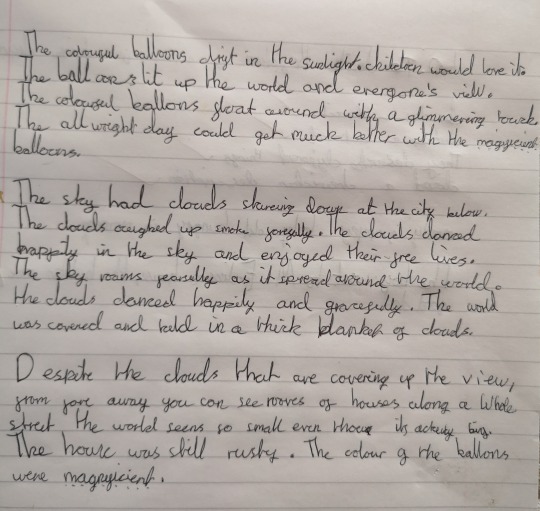 The colourful balloons drift in the sunlight. children would love it.
The balloons lit up the world and everyone's view.
The colourful ballons float around with a glimmering touch.
The allwright day could get much better with the magnificent
balloons.
The sky had clouds stareing down at the city below.
The clouds coughed up smoke forcefully. the clouds danced
happily in the sky and enjoyed their free lives.
The sky roams fearfully as it spread around the world.
the clouds danced happily and gracefully. The world
was covered and held in a thick blanket of clouds.
Despite the clouds that are covering up the view,
from fare away you can see rooves of houses along a Whole
street the world seems so small even its big.
The house was still rusty. The colour of the ballons
were magnificient.